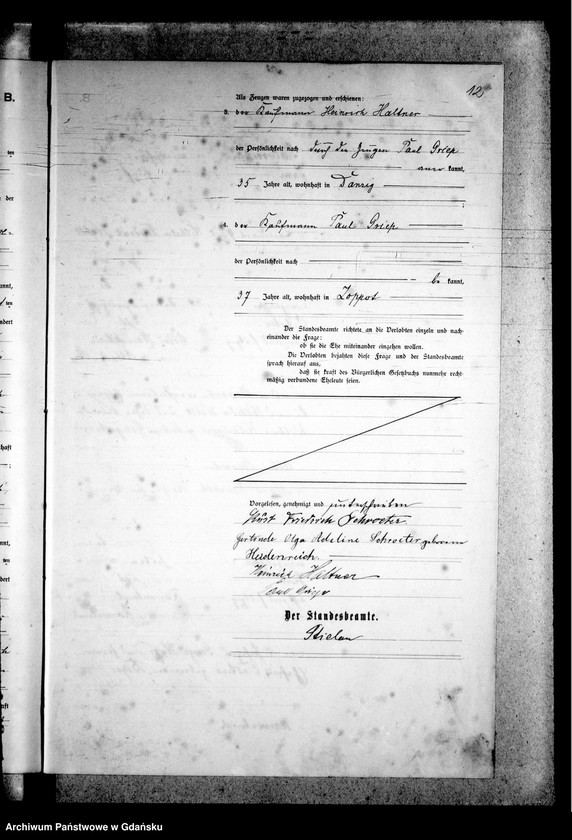 12
B.
Als Zeugen waren zugezogen und erschienen:
3. der Kaufmann Heinrich Hattner
der Persönlichkeit nach durch den Zeugen Paul Griep
anerkannt,
35 Jahre alt, wohnhaft in Danzig
;
4. der Kaufmann Paul Griep
der Persönlichkeit nach
be kannt,
37 Jahre alt, wohnhaft in Zoppot
Der Standesbeamte richtete an die Verlobten einzeln und nach-
einander die Frage:
ob sie die Ehe miteinander eingehen wollen.
Die Verlobten bejahten diese Frage und der Standesbeamte
sprach hierauf aus,
daß sie kraft des Bürgerlichen Gesetzbuchs nunmehr recht-
mäßig verbundene Eheleute seien.
Vorgelesen, genehmigt und unterschrieben
Friedrich Schroeter
Gertrude Olga Adeline Schroeter geborene
Heidenreich
Heinrich Hattner
Paul Griep
Der Standesbeamte.
Archiwum Państwowe w Gdańsku